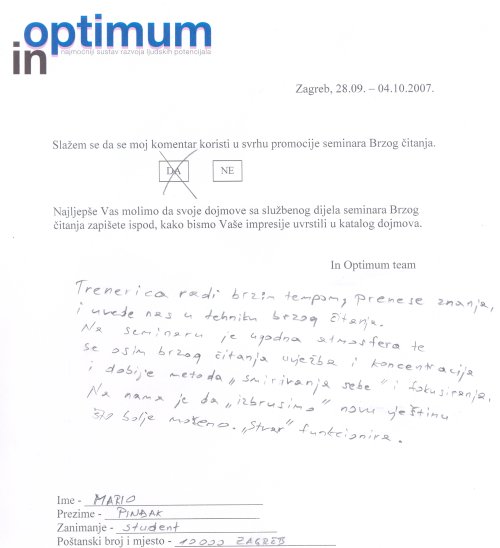 in optimum
najmoćniji sustav razvoja ljudskih potencijala
Zagreb, 28.09. – 04.10.2007.
Slažem se da se moj komentar koristi u svrhu promocije seminara Brzog čitanja.
DA NE
Najljepše Vas molimo da svoje dojmove sa službenog dijela seminara Brzog
čitanja zapišete ispod, kako bismo Vaše impresije uvrstili u katalog dojmova.
In Optimum team
Trenerica radi brzim tempom, prenese znanja,
i uvede nas u tehniku brzog čitanja.
Na seminaru je ugodna atmosfera te
se osim brzog čitanja uvježba i koncentracija
i dobije metoda „smirivanja sebe" i fokusiranja.
Na nama je da „izbrusimo" novu vještinu
što bolje možemo. „Stvar" funkcionira.
Ime - MARIO
Prezime - PINDAK
Zanimanje - student
Poštanski broj i mjesto - 10000 ZAGREB